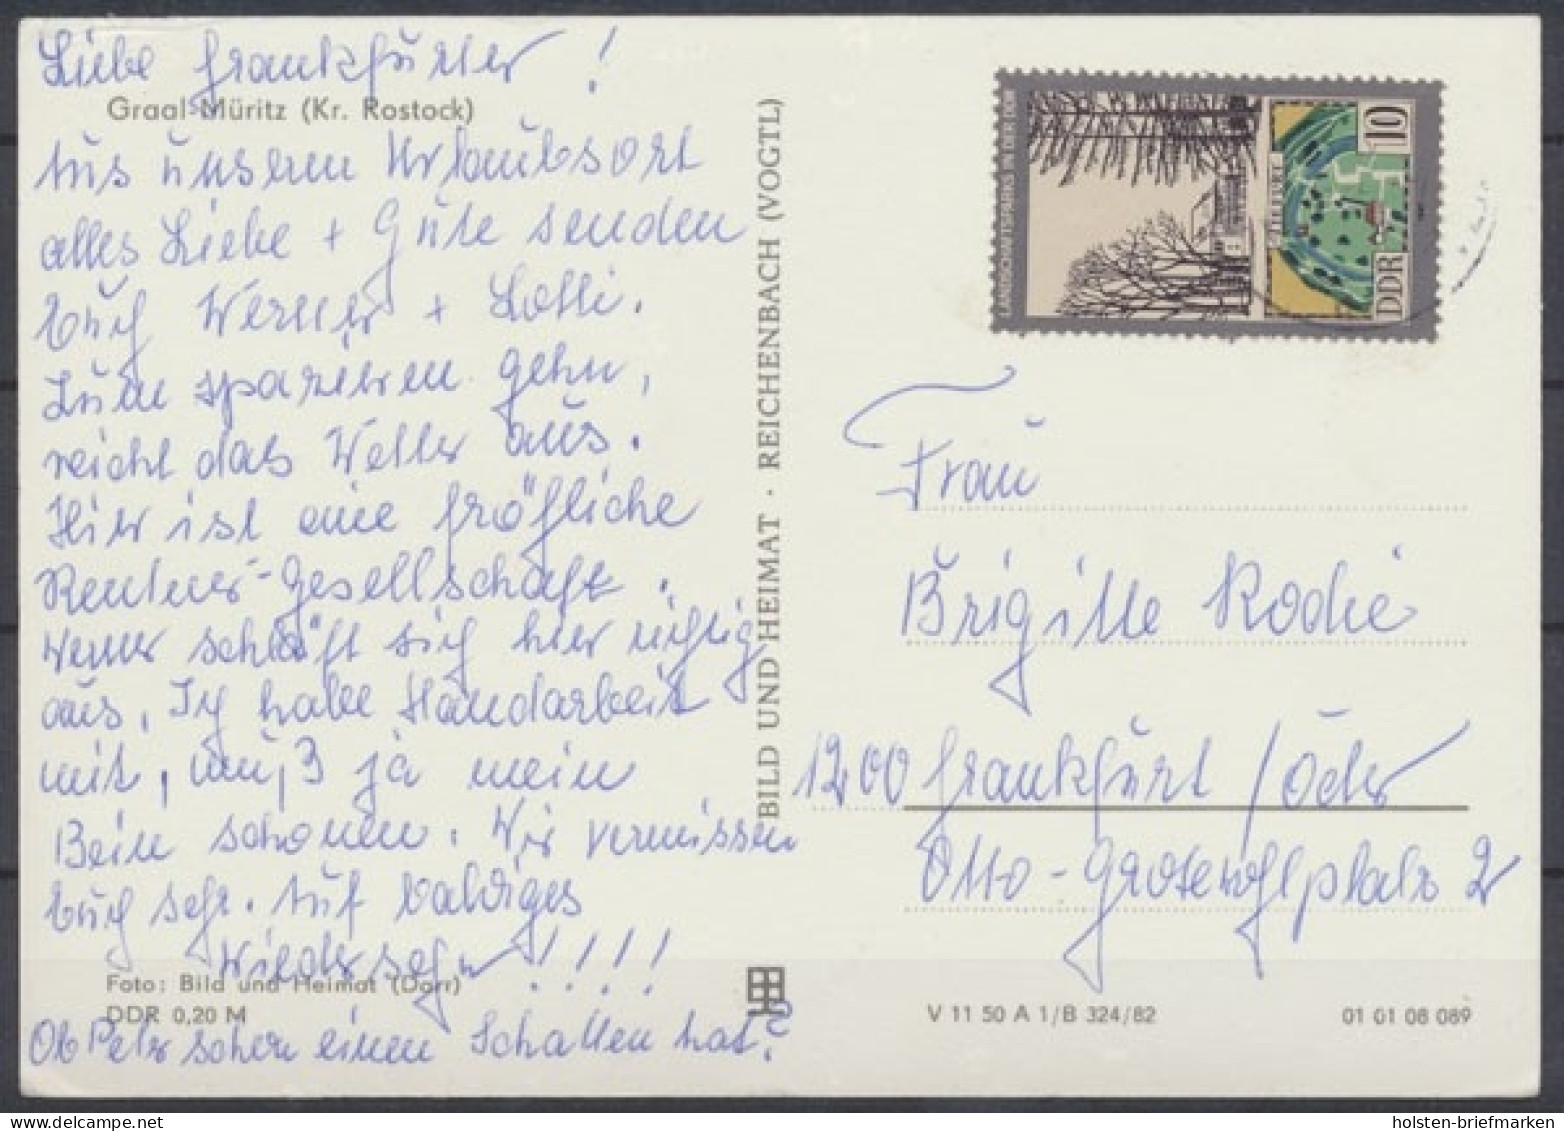 Liebe Frankfurter!
Graal-Müritz (Kr. Rostock)
Aus unserem Urlaubsort
alles Liebe + Gute senden
Euch Werner + Lotti.
Zum spazieren gehn,
reicht das Wetter aus.
Hier ist eine fröhliche
Rentner-Gesellschaft.
Werner schläft sich hier richtig
aus. Ich habe Handarbeit
mit, muß ja mein
Bein schonen. Wir vermissen
Euch sehr. Auf baldiges
Wiedersehn!!!!
Foto: Bild und Heimat (Dorr)
DDR 0,20 M
Ob Petz schon einen Schatten hat?
BILD UND HEIMAT · REICHENBACH (VOGTL)
LANDSCHAFTSPARKS IN DER DDR
DDR 10
Frau
Brigitte Rodie
1200 Frankfurt/Oder
Otto-Grotewohlplatz 2
V 11 50 A 1/B 324/82
01 01 08 089
holsten-briefmarken